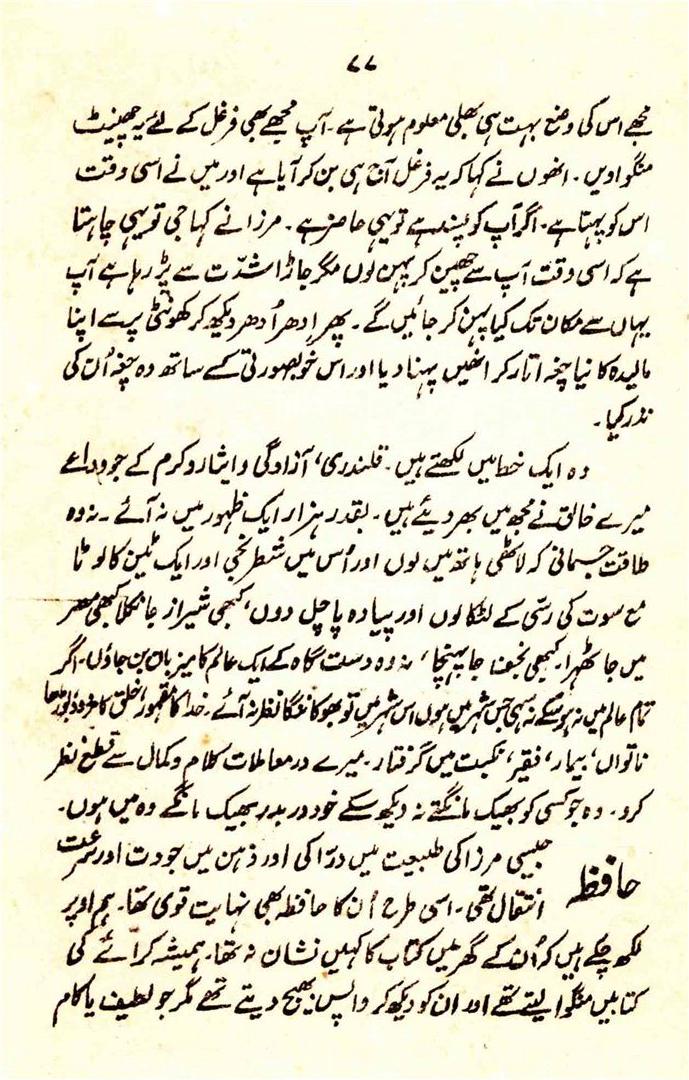 ۷۷
مجھے اس کی وضع بہت ہی بھلی معلوم ہوتی ہے۔ آپ مجھے بھی فرغل کے لئے یہ چھینٹ
منگوا دیں۔ انھوں نے کہا کہ یہ فرغل آج ہی بن کر آیا ہے اور میں نے اسی وقت
اس کو پہنا ہے۔ اگر آپ کو پسند ہے تو یہی حاضر ہے۔ مرزا نے کہا جی تو یہی چاہتا
ہے کہ اسی وقت آپ سے چھین کر پہن لوں مگر جاڑا شدّت سے پڑ رہا ہے آپ
یہاں سے مکان تک کیا پہن کر جائیں گے۔ پھر اِدھر اُدھر دیکھ کر کھونٹی پر سے اپنا
مالیدہ کا نیا چغہ اتار کر انھیں پہنا دیا اور اس خوبصورتی کے ساتھ وہ چغہ اُن کی
نذر کیا۔
وہ ایک خط میں لکھتے ہیں۔ قلندری، آزادگی و ایثار و کرم کے جو دواعے
میرے خالق نے مجھ میں بھر دیئے ہیں۔ بقدر ہزار ایک ظہور میں نہ آئے۔ نہ وہ
طاقت جسمانی کہ لاٹھی ہاتھ میں لوں اور اُس میں شطرنجی اور ایک ٹین کا لوٹا
مع سوت کی رسّی کے لٹکا لوں اور پیادہ پا چل دوں، کبھی شیراز جا نکلا کبھی مصر
میں جا ٹھہرا۔ کبھی نجف جا پہنچا، نہ وہ دست گاہ کے ایک عالم کا میزبان بن جاؤں۔ اگر
تمام عالم میں نہ ہو سکے نہ سہی جس شہر میں ہوں اس شہر میں تو بھوکا ننگا نظر نہ آئے۔ خدا کا مقہور، خلق کا مردود، بوڑھا
ناتواں، بیمار، فقیر، نکبت میں گرفتار۔ میرے در معاملات کلام و کمال سے قطع نظر
کرو۔ وہ جو کسی کو بھیک مانگتے نہ دیکھ سکے خود در بدر بھیک مانگے وہ میں ہوں۔
حافظہ جیسی مرزا کی طبیعت میں درّاکی اور ذہن میں جودت اور سرعت
انتقال تھی۔ اسی طرح اُن کا حافظہ بھی نہایت قوی تھا۔ ہم اوپر
لکھ چکے ہیں کہ اُن کے گھر میں کتاب کا کہیں نشان نہ تھا۔ ہمیشہ کرائے کی
کتابیں منگوا لیتے تھے اور ان کو دیکھ کر واپس بھیج دیتے تھے مگر جو لطیف یا کام